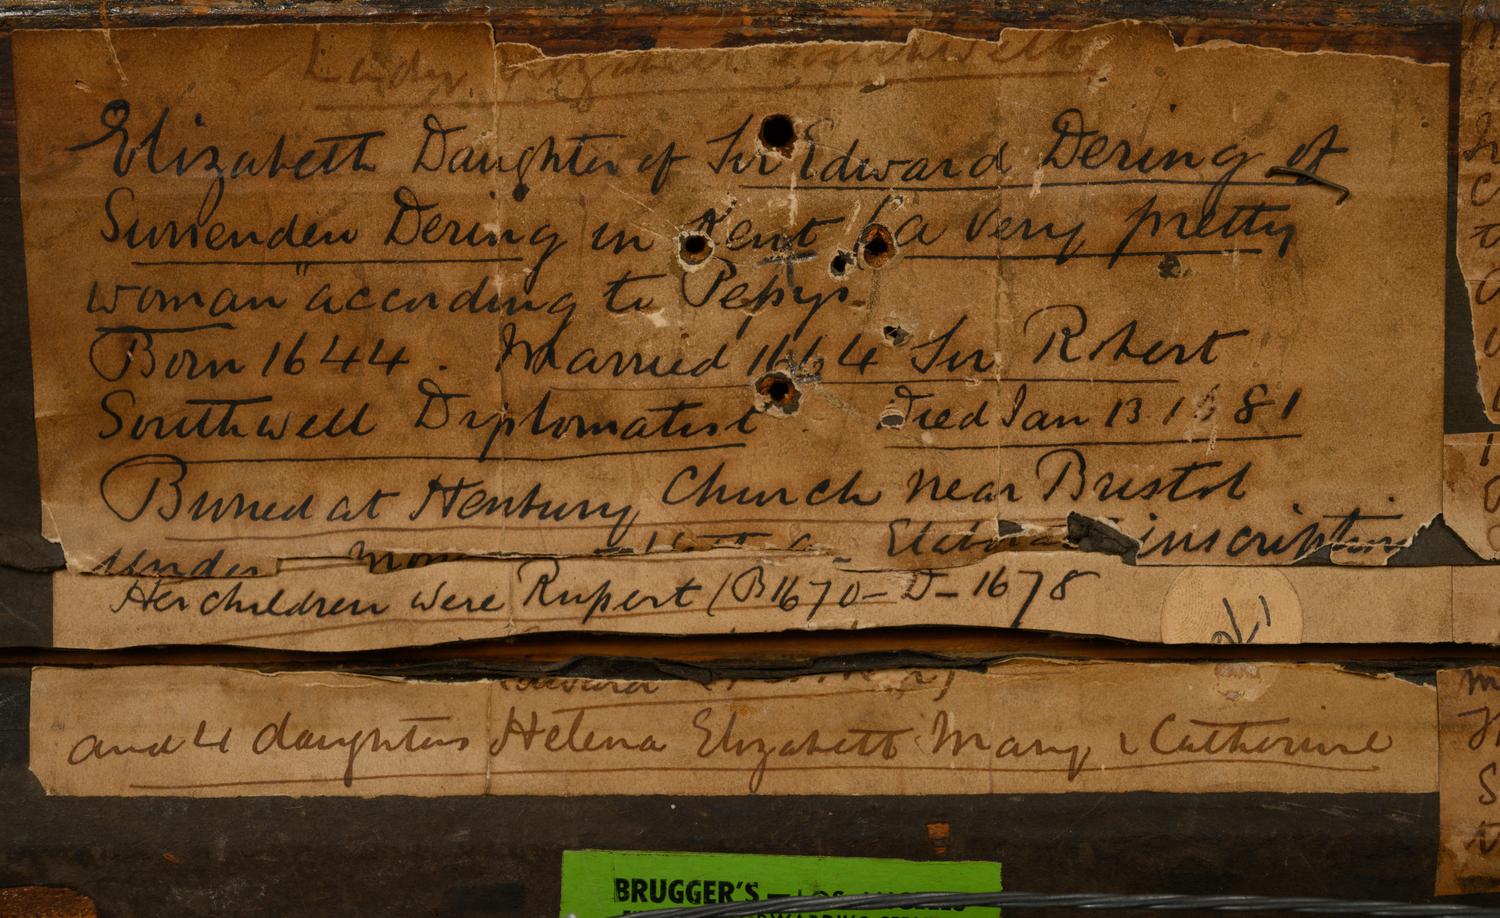 Lady Elizabeth Southwell
Elizabeth Daughter of Sir Edward Dering of
Surrenden Dering in Kent "a very pretty
woman" according to Pepys.
Born 1644. Married 1664 Sir Robert
Southwell Diplomatist Died Jan 13 1681
Buried at Henbury Church near Bristol
under inscription
Her children were Rupert (B 1670 - D - 1678
Edward
and 4 daughters Helena Elizabeth Mary & Catherine
BRUGGER'S - LOS ANGELES